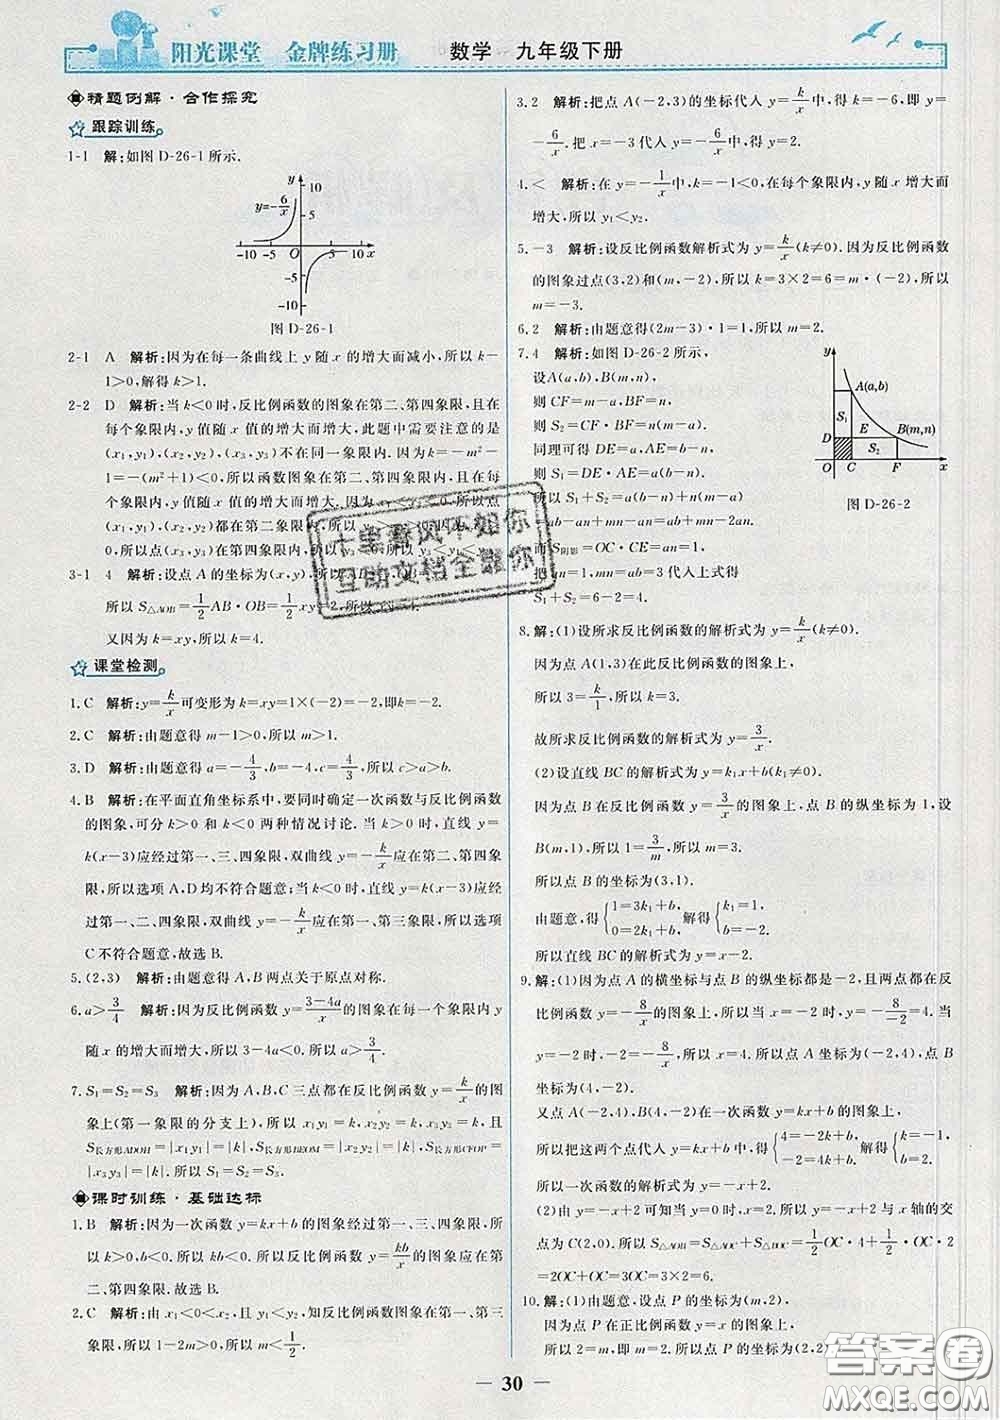 阳光课堂 金牌练习册 数学 九年级下册
精题例解·合作探究
跟踪训练
1-1 解:如图 D-26-1 所示.
y=-6/x
y
10
5
-10 -5 O 5 10 x
-5
-10
图 D-26-1
2-1 A 解析:因为在每一条曲线上 y 随 x 的增大而减小,所以 k-
1>0,解得 k>1.
2-2 D 解析:当 k<0 时,反比例函数的图象在第二、第四象限,且在
每个象限内,y 值随 x 值的增大而增大,此题中需要注意的是
(x₁,y₁),(x₂,y₂),(x₃,y₃)不在同一象限内.因为 k=-m²-
1=-(m²+1)<0,所以函数图象在第二、第四象限内,且在每
个象限内,y 值随 x 值的增大而增大.因为 x₁<x₂<0,所以点
(x₁,y₁),(x₂,y₂)都在第二象限内,所以
0,所以
3-1 4 解析:设点 A 的坐标为(x,y),
所以 S△AOB=1/2 AB·OB=1/2 xy=2,所以 xy=4.
又因为 k=xy,所以 k=4.
课堂检测
1.C 解析:y=k/x 可变形为 k=xy=1×(-2)=-2,即 k=-2.
2.C 解析:由题意得 m-1>0,所以 m>1.
3.D 解析:由题意得 a=-4/3,b=-4,c=4/3,所以 c>a>b.
4.B 解析:在平面直角坐标系中,要同时确定一次函数与反比例函数
的图象,可分 k>0 和 k<0 两种情况讨论.当 k>0 时,直线 y=
k(x-3)应经过第一、三、四象限,双曲线 y=-k/x 应在第二、第四象
限,所以选项 A,D 均不符合题意;当 k<0 时,直线 y=k(x-3)应经
过第一、二、四象限,双曲线 y=-k/x 应在第一、第三象限,所以选项
C 不符合题意,故选 B.
5.(2,3) 解析:由题意得 A,B 两点关于原点对称.
6.a>3/4 解析:因为反比例函数 y=(3-4a)/x 的图象在每一个象限内 y
随 x 的增大而增大,所以 3-4a<0,所以 a>3/4.
7.S₁=S₂=S₃ 解析:因为 A,B,C 三点都在反比例函数 y=k/x 的图
象上(第一象限的分支上),所以 x₁y₁=k,x₂y₂=k,x₃y₃=k,且
S长方形ADOH=|x₁y₁|=|k|,S长方形BEOM=|x₂y₂|=|k|,S长方形CFOP=
|x₃y₃|=|k|.所以 S₁=S₂=S₃.
课时训练·基础达标
1.B 解析:因为一次函数 y=kx+b 的图象经过第一、三、四象限,所
以 k>0,b<0.所以 kb<0.所以反比例函数 y=kb/x 的图象应在第
二、第四象限.故选 B.
2.C 解析:由 x₁<0<x₂,且 y₁<y₂,知反比例函数图象在第一、第三
象限,所以 1-2m>0,所以 m<1/2.
3.2 解析:把点 A(-2,3)的坐标代入 y=k/x 中,得 k=-6,即 y=
-6/x.把 x=-3 代入 y=-6/x 中,得 y=2.
4.< 解析:在 y=-1/x 中,k=-1<0,在每个象限内,y 随 x 增大而
增大,所以 y₁<y₂.
5.-3 解析:设反比例函数解析式为 y=k/x(k≠0).因为反比例函数
的图象过点(3,2)和(m,-2),所以 k=3×2=6=m·(-2),所以
m=-3.
6.2 解析:由题意得(2m-3)·1=1,所以 m=2.
7.4 解析:如图 D-26-2 所示,
设A(a,b),B(m,n),
则 CF=m-a,BF=n,
则 S₂=CF·BF=mn-an.
同理可得 DE=a,AE=b-n,
则 S₁=DE·AE=a(b-n).
所以 S₁+S₂=a(b-n)+mn-an
=ab-an+mn-an=ab+mn-2an.
而 S阴影=OC·CE=an=1,
把 an=1,mn=ab=3 代入上式得
S₁+S₂=6-2=4.
y
A(a,b)
S₁
E B(m,n)
D S₂
O C F x
图 D-26-2
8.解:(1)设所求反比例函数的解析式为 y=k/x(k≠0).
因为点 A(1,3)在此反比例函数的图象上,
所以 3=k/1,所以 k=3.
故所求反比例函数的解析式为 y=3/x.
(2)设直线 BC 的解析式为 y=k₁x+b(k₁≠0).
因为点 B 在反比例函数 y=3/x 的图象上,点 B 的纵坐标为 1,设
B(m,1),所以 1=3/m,所以 m=3.
所以点 B 的坐标为(3,1).
由题意,得{1=3k₁+b, 0=2k₁+b,解得{k₁=1, b=-2.
所以直线 BC 的解析式为 y=x-2.
9.解:(1)因为点 A 的横坐标与点 B 的纵坐标都是-2,且两点都在反
比例函数 y=-8/x 的图象上,所以当 x=-2 时,y=-8/-2=4.当
y=-2 时,-2=-8/x,所以 x=4.所以点 A 坐标为(-2,4),点 B
坐标为(4,-2).
又点 A(-2,4),B(4,-2)在一次函数 y=kx+b 的图象上,
所以把这两个点代入 y=kx+b 中,得{4=-2k+b, -2=4k+b,解得{k=-1, b=2.
所以一次函数的解析式为 y=-x+2.
(2)由 y=-x+2 可知当 y=0 时,x=2.所以 y=-x+2 与 x 轴的交
点为 C(2,0).所以 S△AOB=S△AOC+S△BOC=1/2 OC·4+1/2·OC·2=
2OC+OC=3OC=3×2=6.
10.解:(1)由题意,设点 P 的坐标为(m,2),
因为点 P 在正比例函数 y=x 的图象上,
所以 2=m,即 m=2.所以点 P 的坐标为(2,2)
十里春风不如你
互助文档全靠你
答案圈
MXQE.COM
30